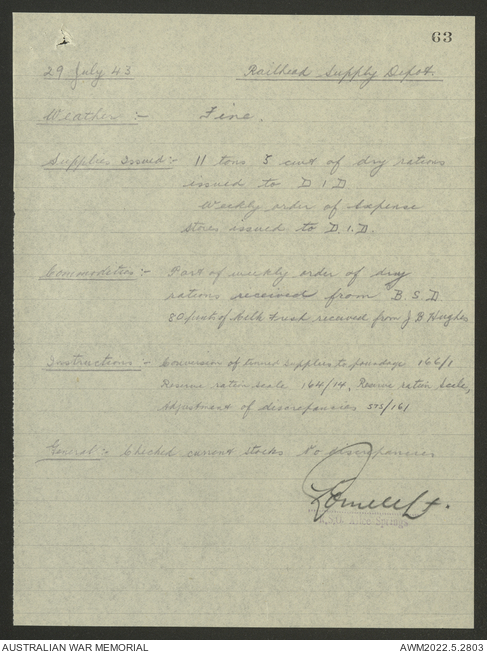 63
29 July 43 Railhead Supply Depot.
Weather :- Fine.
Supplies Issued:- 11 tons 5 cwt of dry rations
issued to D I D
Weekly order of Expense
Stores issued to D.I.D.
Commodities :- Part of weekly order of dry
rations received from B.S.D
80 of Milk Fresh received from J B Hughes
Instructions :- Conversion of tinned supplies to poundage 166/1
Reserve ration scale 164/14, Reserve ration Scale,
Adjustment of discrepancies 575/161
General :- Checked current stocks No discrepancies
Alice Springs
AUSTRALIAN WAR MEMORIAL AWM2022.5.2803